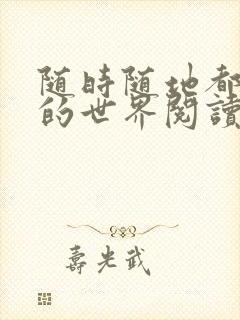 随時随地都
的世界閱讀
壽光武